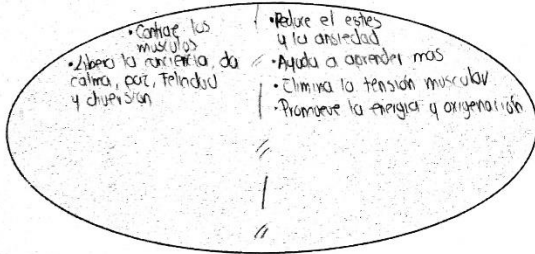 • Contrae los
musculos
• Libera la conciencia, da
calma, paz, Felicidad
y diversión
• Reduce el estres
y la ansiedad
• Ayuda a aprender mas
• Elimina la tensión muscular
• Promueve la energia y oxigenación